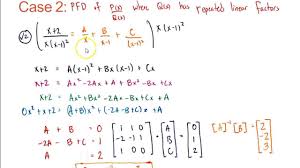 Case 2: PFD of P(x)/Q(x) when Q(x) has repeated linear factors
√2) ( (x+2)/(x(x-1)²) = A/x + B/(x-1) + C/(x-1)² ) x(x-1)²
x+2 = A(x-1)² + Bx(x-1) + Cx
x+2 = Ax² - 2Ax + A + Bx² - Bx + Cx
x+2 = Ax² + Bx² - 2Ax - Bx + Cx + A
0x² + x + 2 = (A+B)x² + (-2A-B+C)x + A
A + B = 0 [1 1 0] [A] = [0] [A]⁻¹[B] = [2]
-2A - B + C = 1 [-2 -1 1] [B] [1] [-2]
A = 2 [1 0 0] [C] [2] [3]